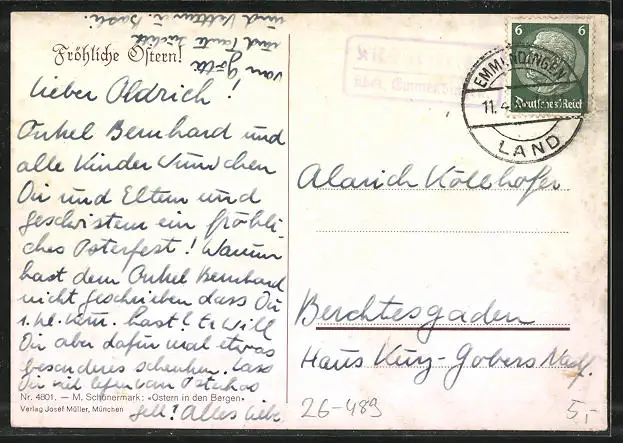 Fröhliche Ostern!
Lieber Aldrich!
Onkel Bernhard und
alle Kinder wünschen
Dir und Eltern und
Geschwistern ein fröhli-
ches Osterfest! Warum
hast dem Onkel Bernhard
nicht geschrieben dass Du
hast? Er will
Dir aber dafür mal etwas
besonderes schenken. Lass
Dir viel
gell! Alles liebe
von
und Tante
und Vettern u. Basli.
Nr. 4801. — M. Schönermark: «Ostern in den Bergen»
Verlag Josef Müller, München
über Emmendingen
6 6
Deutsches Reich
EMMENDINGEN
11.4.
LAND
Alarich Köllhofer
Berchtesgaden
Haus Kurz-Gobers Nachf.
26-489
5,-